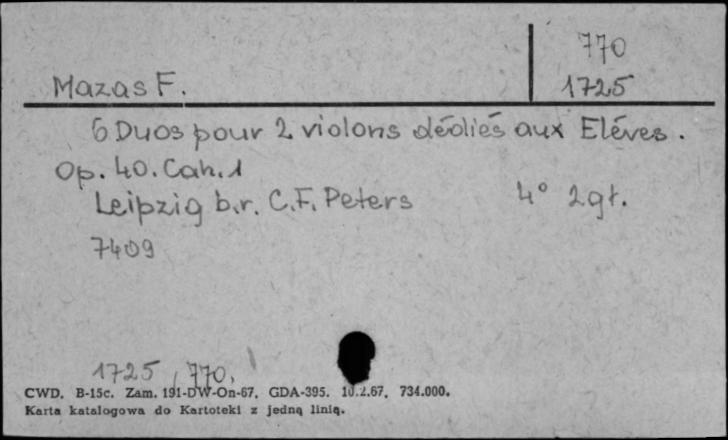 770
Mazas F. 1725
6 Duos pour 2 violons dédiés aux Eléves.
Op. 40. Cah. 1
Leipzig b.r. C.F. Peters 4° 2gł.
7409
1725, 770.
CWD. B-15c. Zam. 191-DW-On-67. GDA-395. 10.2.67. 734.000.
Karta katalogowa do Kartoteki z jedną linią.